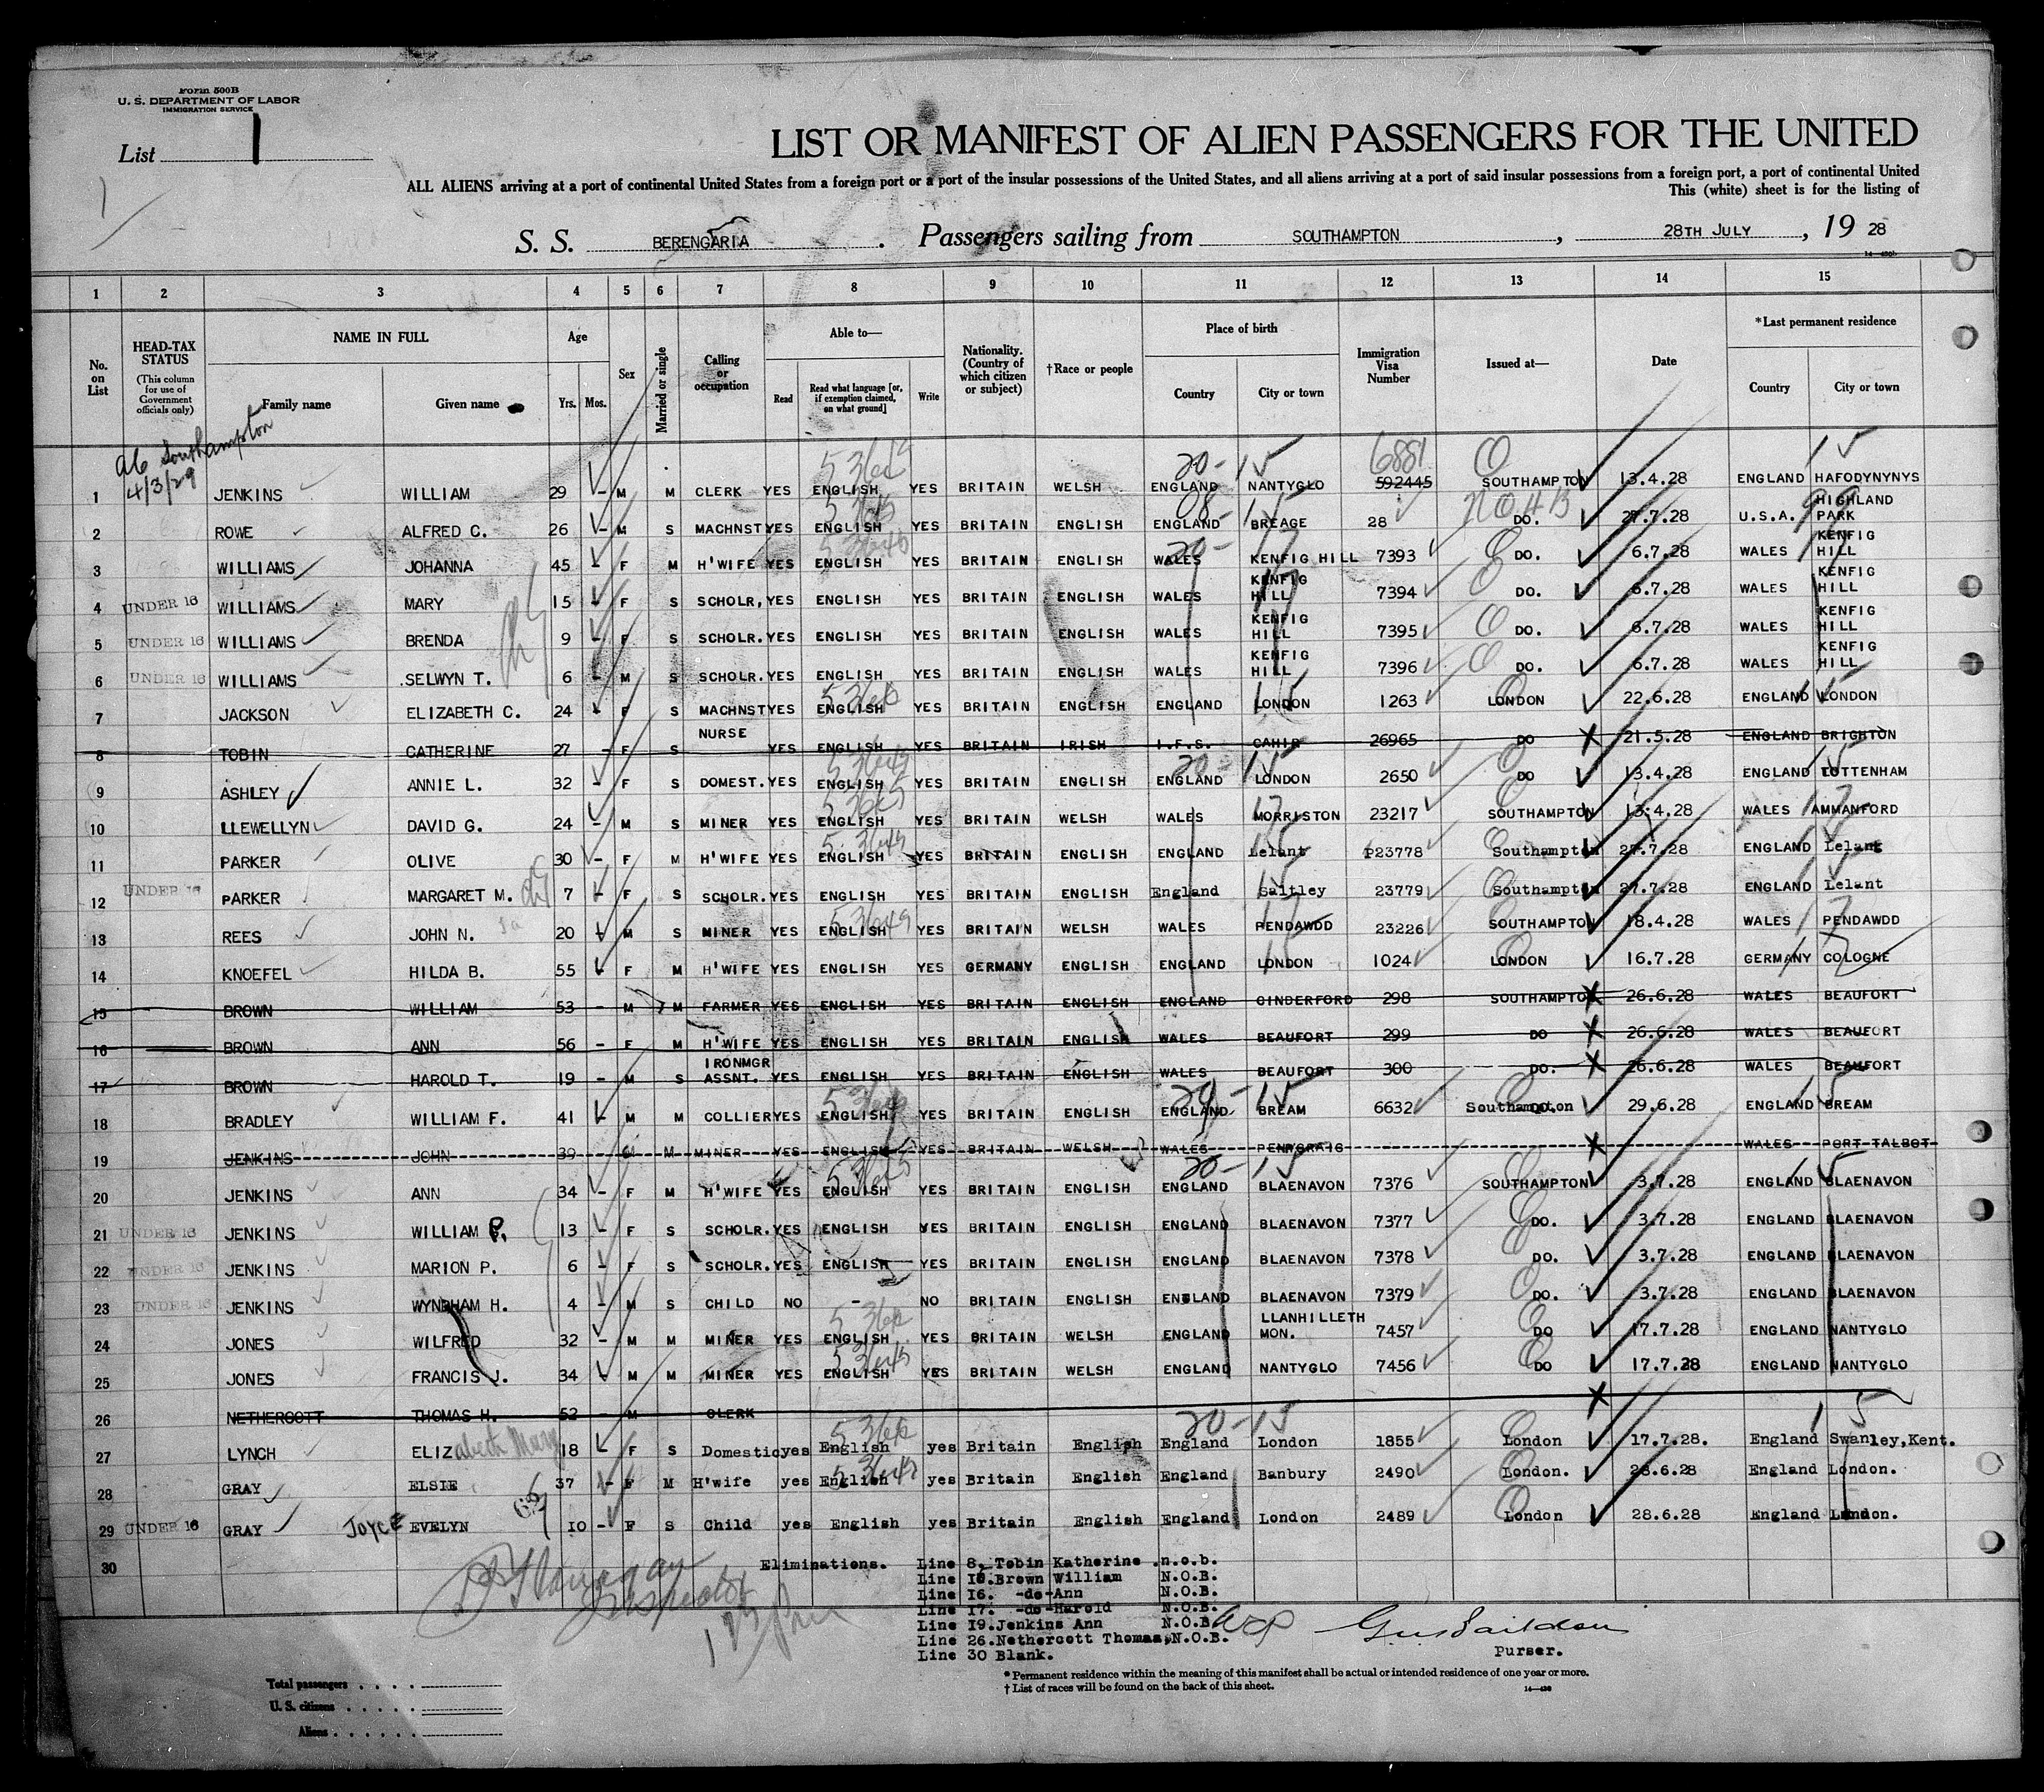 Form 500B
U. S. DEPARTMENT OF LABOR
IMMIGRATION SERVICE
List 1
LIST OR MANIFEST OF ALIEN PASSENGERS FOR THE UNITED
ALL ALIENS arriving at a port of continental United States from a foreign port or a port of the insular possessions of the United States, and all aliens arriving at a port of said insular possessions from a foreign port, a port of continental United
This (white) sheet is for the listing of
S. S. BERENGARIA . Passengers sailing from SOUTHAMPTON , 28TH JULY , 19 28
1 2 3 4 5 6 7 8 9 10 11 12 13 14 15
No. on List HEAD-TAX STATUS (This column for use of Government officials only) NAME IN FULL Family name Given name Age Yrs. Mos. Sex Married or single Calling or occupation Able to— Read Read what language [or, if exemption claimed, on what ground] Write Nationality. (Country of which citizen or subject) †Race or people Place of birth Country City or town Immigration Visa Number Issued at— Date *Last permanent residence Country City or town
Southampton
4/3/29
6881
1 JENKINS WILLIAM 29 - M M CLERK YES ENGLISH YES BRITAIN WELSH ENGLAND NANTYGLO 592445 SOUTHAMPTON 13.4.28 ENGLAND HAFODYNYNYS
2 ROWE ALFRED C. 26 - M S MACHNST YES ENGLISH YES BRITAIN ENGLISH ENGLAND BREAGE 28 DO. 27.7.28 U.S.A. HIGHLAND PARK
3 WILLIAMS JOHANNA 45 - F M H'WIFE YES ENGLISH YES BRITAIN ENGLISH WALES KENFIG HILL 7393 DO. 6.7.28 WALES KENFIG HILL
4 UNDER 16 WILLIAMS MARY 15 - F S SCHOLR, YES ENGLISH YES BRITAIN ENGLISH WALES KENFIG HILL 7394 DO. 6.7.28 WALES KENFIG HILL
5 UNDER 16 WILLIAMS BRENDA 9 - F S SCHOLR. YES ENGLISH YES BRITAIN ENGLISH WALES KENFIG HILL 7395 DO. 6.7.28 WALES KENFIG HILL
6 UNDER 16 WILLIAMS SELWYN T. 6 - M S SCHOLR. YES ENGLISH YES BRITAIN ENGLISH WALES KENFIG HILL 7396 DO. 6.7.28 WALES KENFIG HILL
7 JACKSON ELIZABETH C. 24 - F S MACHNST YES ENGLISH YES BRITAIN ENGLISH ENGLAND LONDON 1263 LONDON 22.6.28 ENGLAND LONDON
8 TOBIN CATHERINE 27 - F S NURSE YES ENGLISH YES BRITAIN IRISH I.F.S. CAHIR 26965 DO 21.5.28 ENGLAND BRIGHTON
9 ASHLEY ANNIE L. 32 - F S DOMEST. YES ENGLISH YES BRITAIN ENGLISH ENGLAND LONDON 2650 DO 13.4.28 ENGLAND TOTTENHAM
10 LLEWELLYN DAVID G. 24 - M S MINER YES ENGLISH YES BRITAIN WELSH WALES MORRISTON 23217 SOUTHAMPTON 13.4.28 WALES AMMANFORD
11 PARKER OLIVE 30 - F M H'WIFE YES ENGLISH YES BRITAIN ENGLISH ENGLAND Lelant 23778 Southampton 27.7.28 ENGLAND Lelant
12 UNDER 16 PARKER MARGARET M. 7 - F S SCHOLR. YES ENGLISH YES BRITAIN ENGLISH England Saltley 23779 Southampton 27.7.28 ENGLAND Lelant
13 REES JOHN N. 20 - M S MINER YES ENGLISH YES BRITAIN WELSH WALES PENDAWDD 23226 SOUTHAMPTON 18.4.28 WALES PENDAWDD
14 KNOEFEL HILDA B. 55 - F M H'WIFE YES ENGLISH YES GERMANY ENGLISH ENGLAND LONDON 1024 LONDON 16.7.28 GERMANY COLOGNE
15 BROWN WILLIAM 53 - M M FARMER YES ENGLISH YES BRITAIN ENGLISH ENGLAND CINDERFORD 298 SOUTHAMPTON 26.6.28 WALES BEAUFORT
16 BROWN ANN 56 - F M H'WIFE YES ENGLISH YES BRITAIN ENGLISH WALES BEAUFORT 299 DO 26.6.28 WALES BEAUFORT
17 BROWN HAROLD T. 19 - M S IRONMGR ASSNT. YES ENGLISH YES BRITAIN ENGLISH WALES BEAUFORT 300 DO. 26.6.28 WALES BEAUFORT
18 BRADLEY WILLIAM F. 41 - M M COLLIER YES ENGLISH YES BRITAIN ENGLISH ENGLAND BREAM 6632 Southampton 29.6.28 ENGLAND BREAM
19 JENKINS JOHN 39 M M MINER YES ENGLISH YES BRITAIN WELSH WALES PENYGRAIG WALES PORT TALBOT
20 JENKINS ANN 34 - F M H'WIFE YES ENGLISH YES BRITAIN ENGLISH ENGLAND BLAENAVON 7376 SOUTHAMPTON 3.7.28 ENGLAND BLAENAVON
21 UNDER 16 JENKINS WILLIAM P. 13 - F S SCHOLR. YES ENGLISH YES BRITAIN ENGLISH ENGLAND BLAENAVON 7377 DO. 3.7.28 ENGLAND BLAENAVON
22 UNDER 16 JENKINS MARION P. 6 - F S SCHOLR. YES ENGLISH YES BRITAIN ENGLISH ENGLAND BLAENAVON 7378 DO. 3.7.28 ENGLAND BLAENAVON
23 UNDER 16 JENKINS WYNDHAM H. 4 - M S CHILD NO - NO BRITAIN ENGLISH ENGLAND BLAENAVON 7379 DO. 3.7.28 ENGLAND BLAENAVON
24 JONES WILFRED 32 - M M MINER YES ENGLISH YES BRITAIN WELSH ENGLAND LLANHILLETH MON. 7457 DO 17.7.28 ENGLAND NANTYGLO
25 JONES FRANCIS J. 34 - M M MINER YES ENGLISH YES BRITAIN WELSH ENGLAND NANTYGLO 7456 DO 17.7.28 ENGLAND NANTYGLO
26 NETHERCOTT THOMAS H. 52 - M CLERK
27 LYNCH ELIZabeth Mary 18 - F S Domestic yes English yes Britain English England London 1855 London 17.7.28. England Swanley, Kent.
28 GRAY ELSIE 37 - F M H'wife yes English yes Britain English England Banbury 2490 London. 28.6.28 England London.
29 UNDER 16 GRAY JOYCE EVELYN 10 - F S Child yes English yes Britain English England London 2489 London 28.6.28 England London.
30
Eliminations. Line 8, Tobin Katherine .n.o.b.
Line 15.Brown William N.O.B.
Line 16. -do-Ann N.O.B.
Line 17. -do-Harold N.O.B.
Line 19.Jenkins Ann N.O.B.
Line 26.Nethercott Thomas,N.O.B.
Line 30 Blank.
Inspector
Purser.
* Permanent residence within the meaning of this manifest shall be actual or intended residence of one year or more.
† List of races will be found on the back of this sheet.
Total passengers
U. S. citizens
Aliens